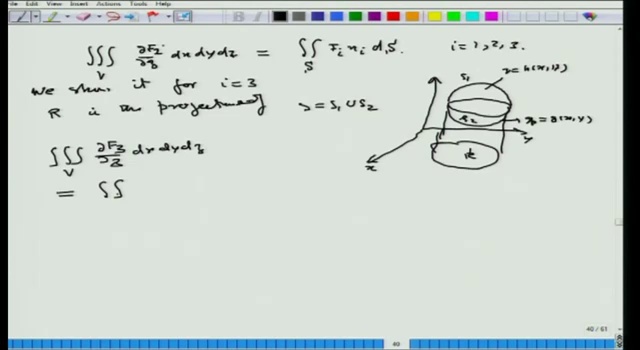 File Edit View Insert Actions Tools Help
∭_V ∂F_i/∂z dx dy dz = ∬_S F_i n_i dS. i = 1, 2, 3.
We show it for i = 3
R is the projection of S = S₁ ∪ S₂
∭_V ∂F₃/∂z dx dy dz
= ∬
S₁
z = h(x, y)
S₂
z = g(x, y)
R
x
y
40 / 61
40